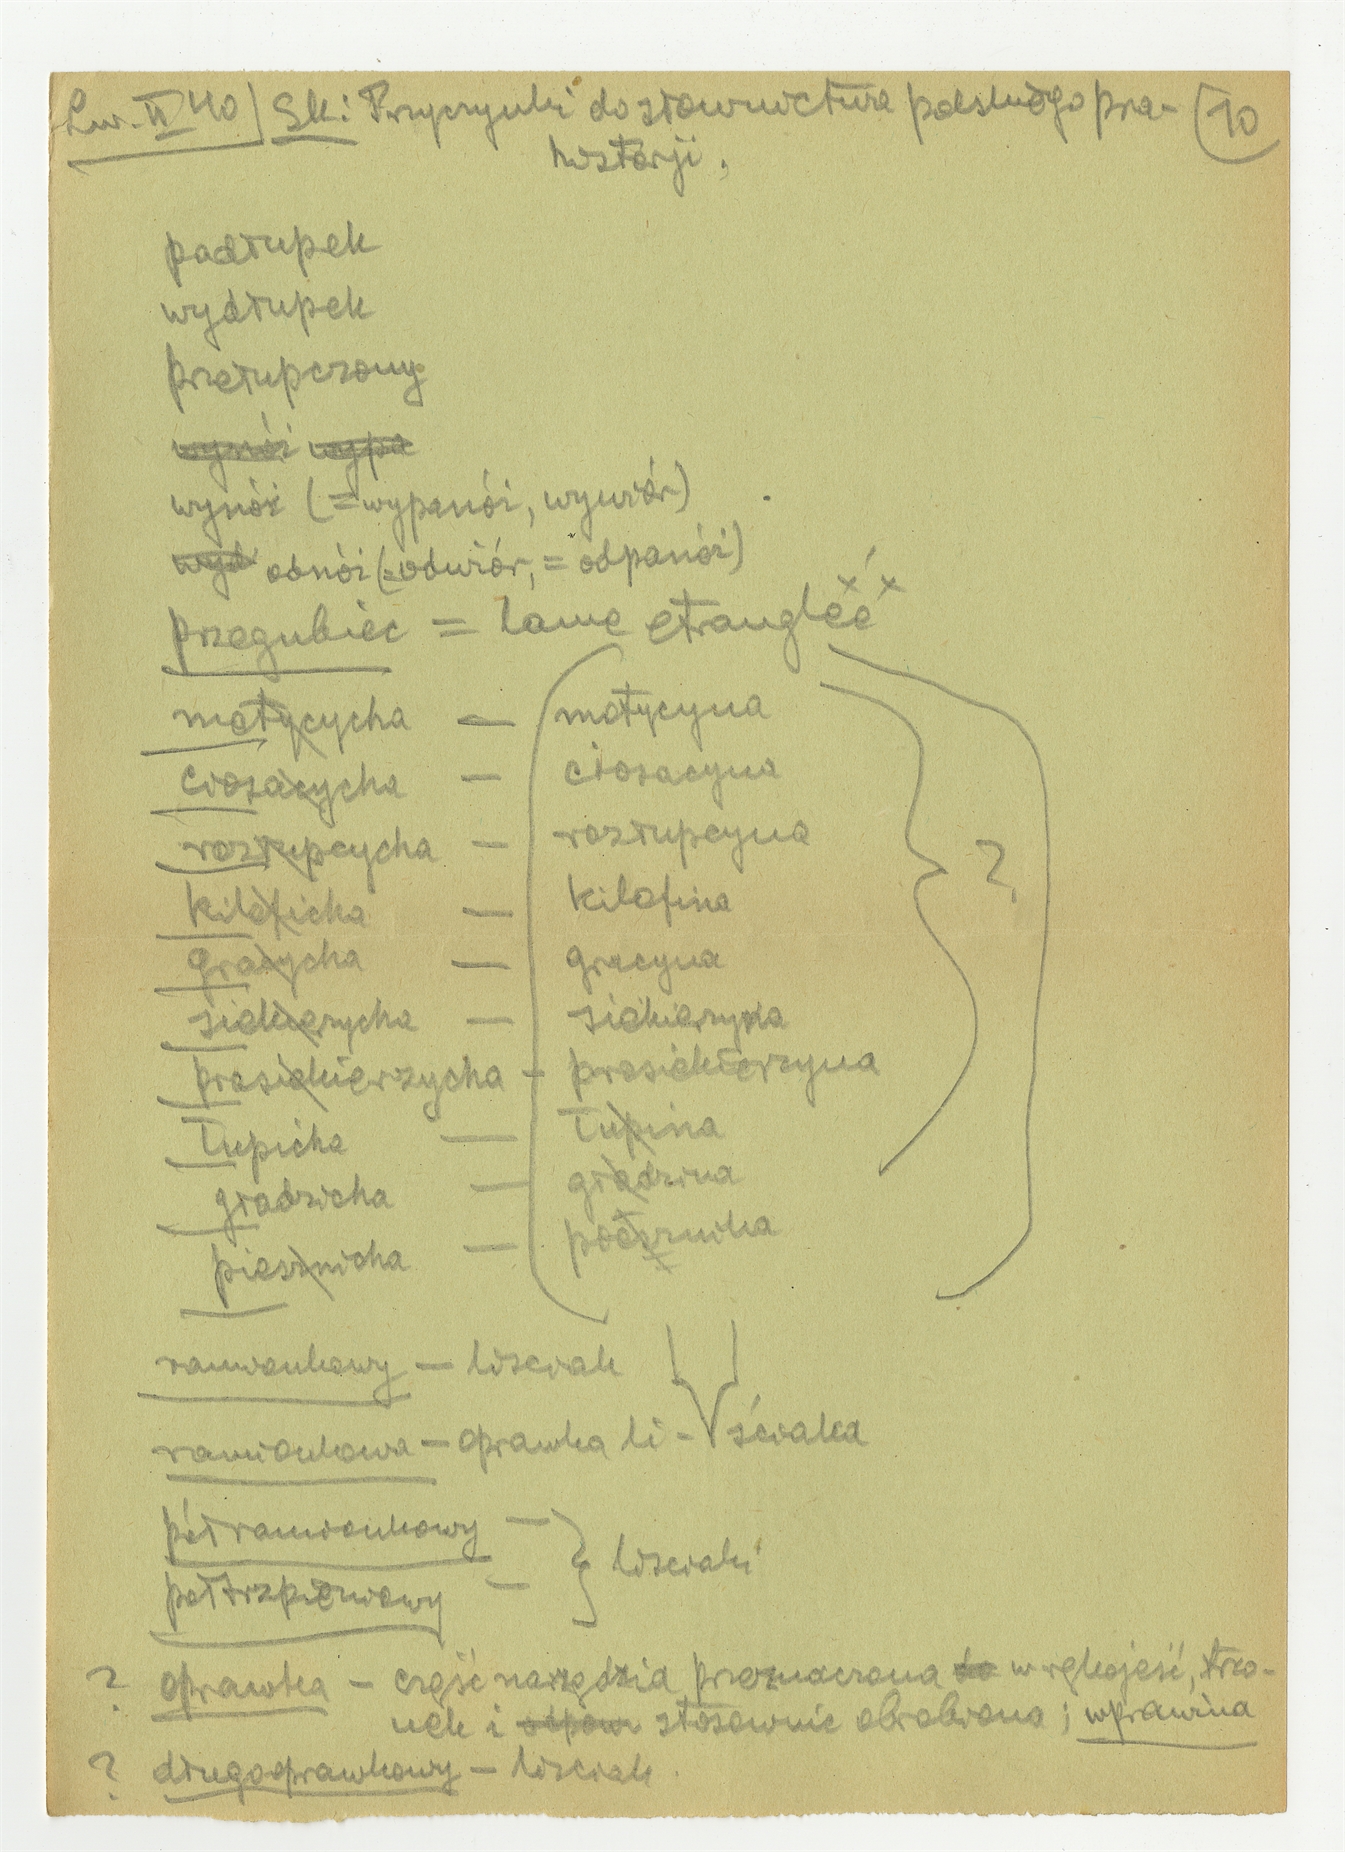 Lw. II 40) Sk: Przyczynki do słownictwa polskiego pra- (10
historji.
podłupek
wydłupek
przełupczony
wynói wypa
wynói (=wypanói, wywiór)
wyd odnói (=odwiór, = odpanói)
przegubiec = lame étranglée
motycycha — motycyna
ciosacycha — ciosacyna
rozłupcycha — rozłupcyna
kiloficha — kilofina
gracycha — gracyna
siekierzycha — siekierzyna
prasiekierzycha - prasiekierzyna
?
łupicha — łupina
gradzicha — gradzina
piesznicha
ramionkowy — liściak
ramionkowa — oprawka li-ściaka
półramionkowy —
} liściaki
półtrzpieniowy —
? oprawka — część narzędzia przeznaczona do w rękojeść, trzo-
nek i odpow stosownie obrobiona; wprawina
? długooprawkowy — liściak.